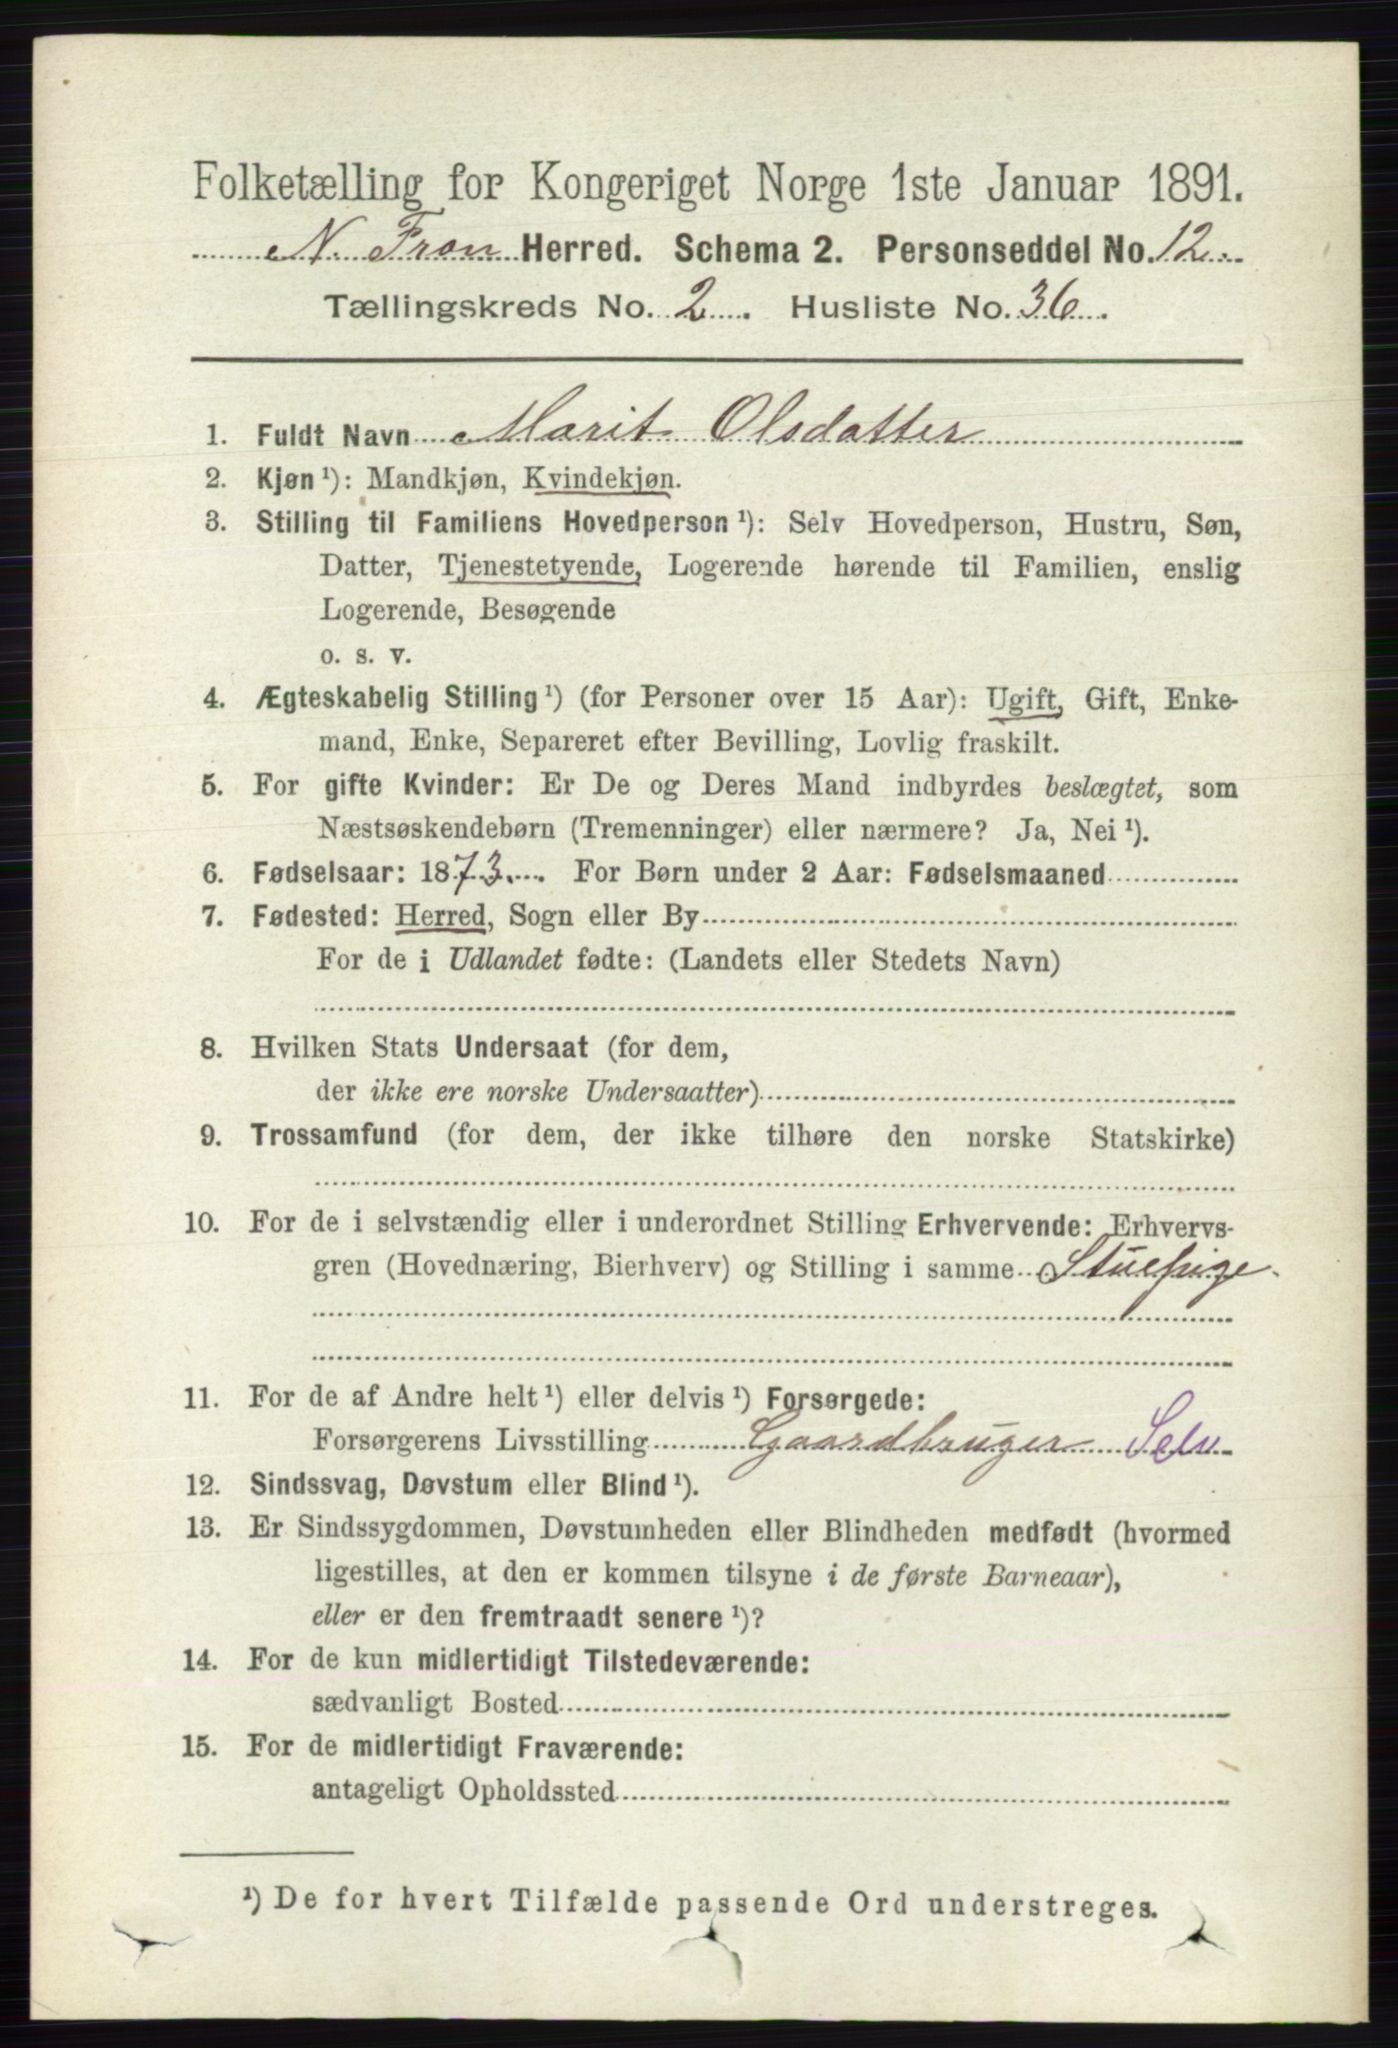 Folketælling for Kongeriget Norge 1ste Januar 1891.
N. Fron Herred. Schema 2. Personseddel No. 12
Tællingskreds No. 2. Husliste No. 36.
1. Fuldt Navn Marit Olsdatter
2. Kjøn ¹): Mandkjøn, Kvindekjøn.
3. Stilling til Familiens Hovedperson ¹): Selv Hovedperson, Hustru, Søn,
Datter, Tjenestetyende, Logerende hørende til Familien, enslig
Logerende, Besøgende
o. s. v.
4. Ægteskabelig Stilling ¹) (for Personer over 15 Aar): Ugift, Gift, Enke-
mand, Enke, Separeret efter Bevilling, Lovlig fraskilt.
5. For gifte Kvinder: Er De og Deres Mand indbyrdes beslægtet, som
Næstsøskendebørn (Tremenninger) eller nærmere? Ja, Nei ¹).
6. Fødselsaar: 1873. For Børn under 2 Aar: Fødselsmaaned
7. Fødested: Herred, Sogn eller By
For de i Udlandet fødte: (Landets eller Stedets Navn)
8. Hvilken Stats Undersaat (for dem,
der ikke ere norske Undersaatter)
9. Trossamfund (for dem, der ikke tilhøre den norske Statskirke)
10. For de i selvstændig eller i underordnet Stilling Erhvervende: Erhvervs-
gren (Hovednæring, Bierhverv) og Stilling i samme Stuepige.
11. For de af Andre helt ¹) eller delvis ¹) Forsørgede:
Forsørgerens Livsstilling Gaardbruger Selv
12. Sindssvag, Døvstum eller Blind ¹).
13. Er Sindssygdommen, Døvstumheden eller Blindheden medfødt (hvormed
ligestilles, at den er kommen tilsyne i de første Barneaar),
eller er den fremtraadt senere ¹)?
14. For de kun midlertidigt Tilstedeværende:
sædvanligt Bosted
15. For de midlertidigt Fraværende:
antageligt Opholdssted
¹) De for hvert Tilfælde passende Ord understreges.